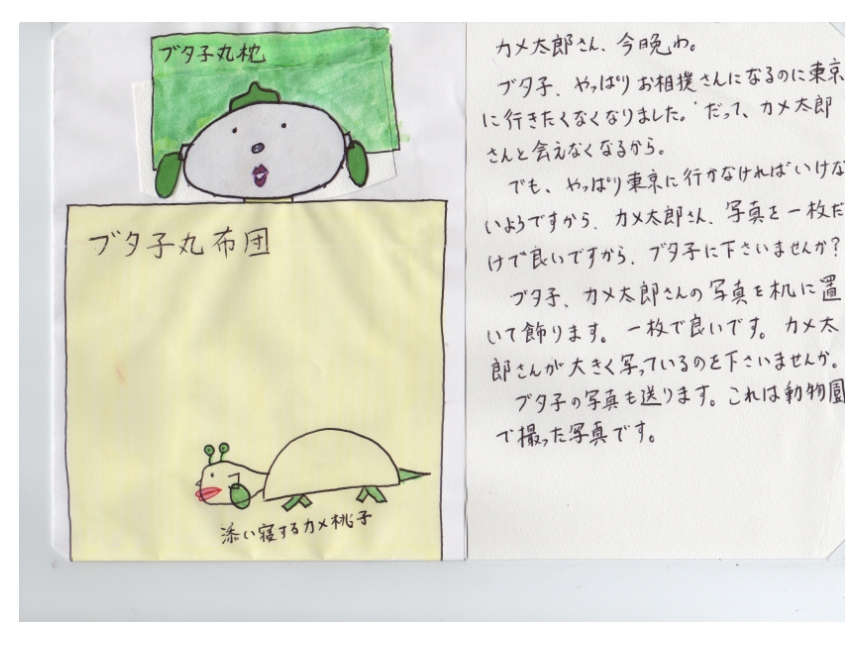 ブタ子丸枕
ブタ子丸布団
添い寝するカメ桃子
カメ太郎さん、今晩わ。
ブタ子、やっぱりお相撲さんになるのに東京
に行きたくなくなりました。だって、カメ太郎
さんと会えなくなるから。
でも、やっぱり東京に行かなければいけな
いようですから、カメ太郎さん、写真を一枚だ
けで良いですから、ブタ子に下さいませんか?
ブタ子、カメ太郎さんの写真を机に置
いて飾ります。一枚で良いです。カメ太
郎さんが大きく写っているのを下さいませんか。
ブタ子の写真も送ります。これは動物園
で撮った写真です。